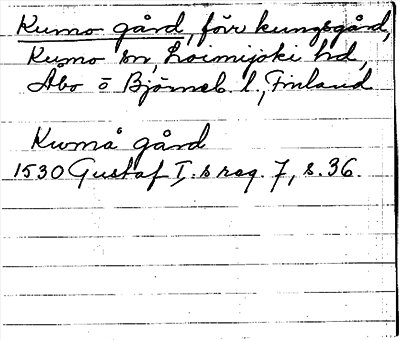 Kumo gård, förr kungsgård,
Kumo sn, Loimijoki hd,
Åbo o Björneb. l., Finland
Kwmå gård
1530 Gustaf I:s reg. 7, s. 36.